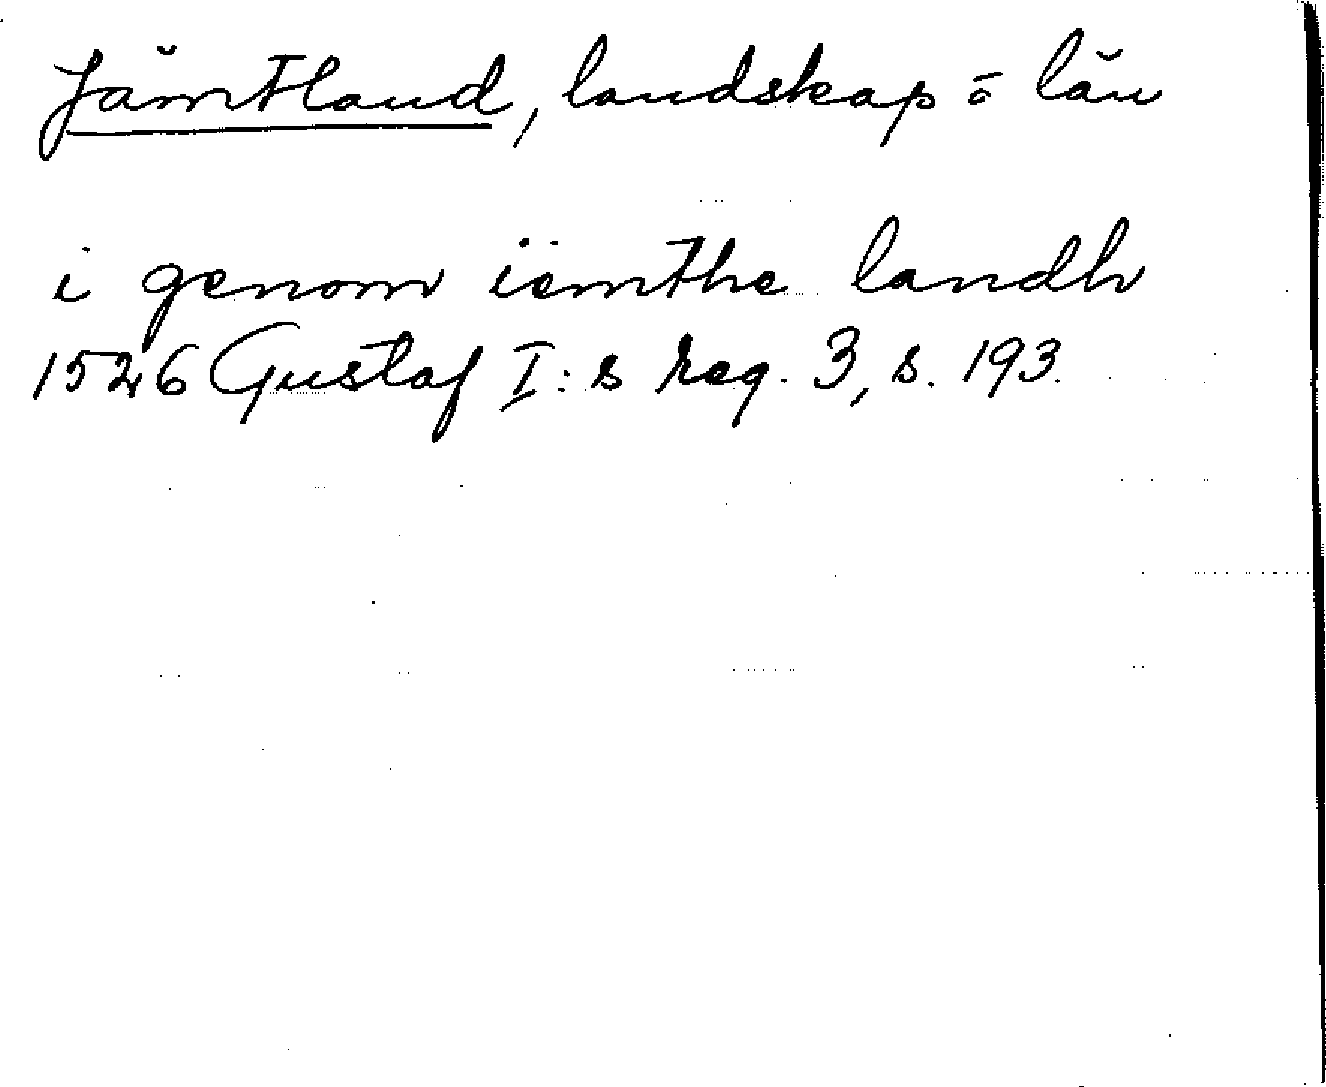 Jämtland, landskap o län
i genom iemthe landh
1526 Gustaf I:s reg. 3, s. 193.